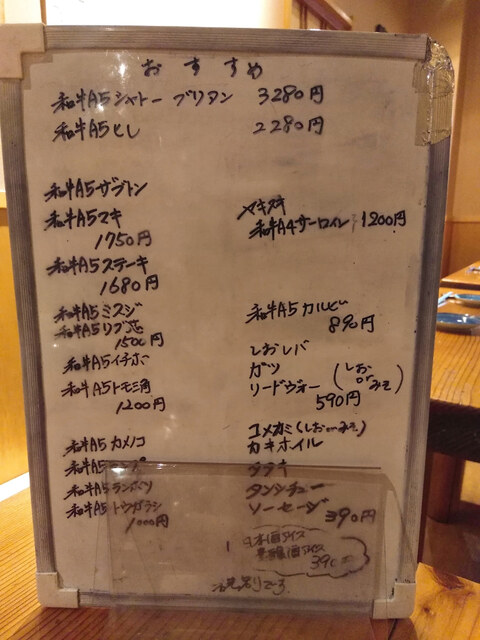 おすすめ
和牛A5シャトーブリアン 3280円
和牛A5ヒレ 2280円
和牛A5ザブトン
和牛A5マキ
1750円
和牛A5ステーキ
1680円
和牛A5ミスジ
和牛A5リブ芯
1500円
和牛A5イチボ
和牛A5トモミ角
1200円
和牛A5カメノコ
和牛A5ランプ
和牛A5ランボソ
和牛A5トウガラシ
1000円
ヤキスキ
和牛A4サーロイン 1200円
和牛A5カルビ
890円
しおレバ
ガツ
リードヴォー (しおorみそ)
590円
コメカミ(しおorみそ)
カキホイル
タタキ
タンシチュー
ソーセージ
390円
日本酒アイス
黒糖酒アイス
390円